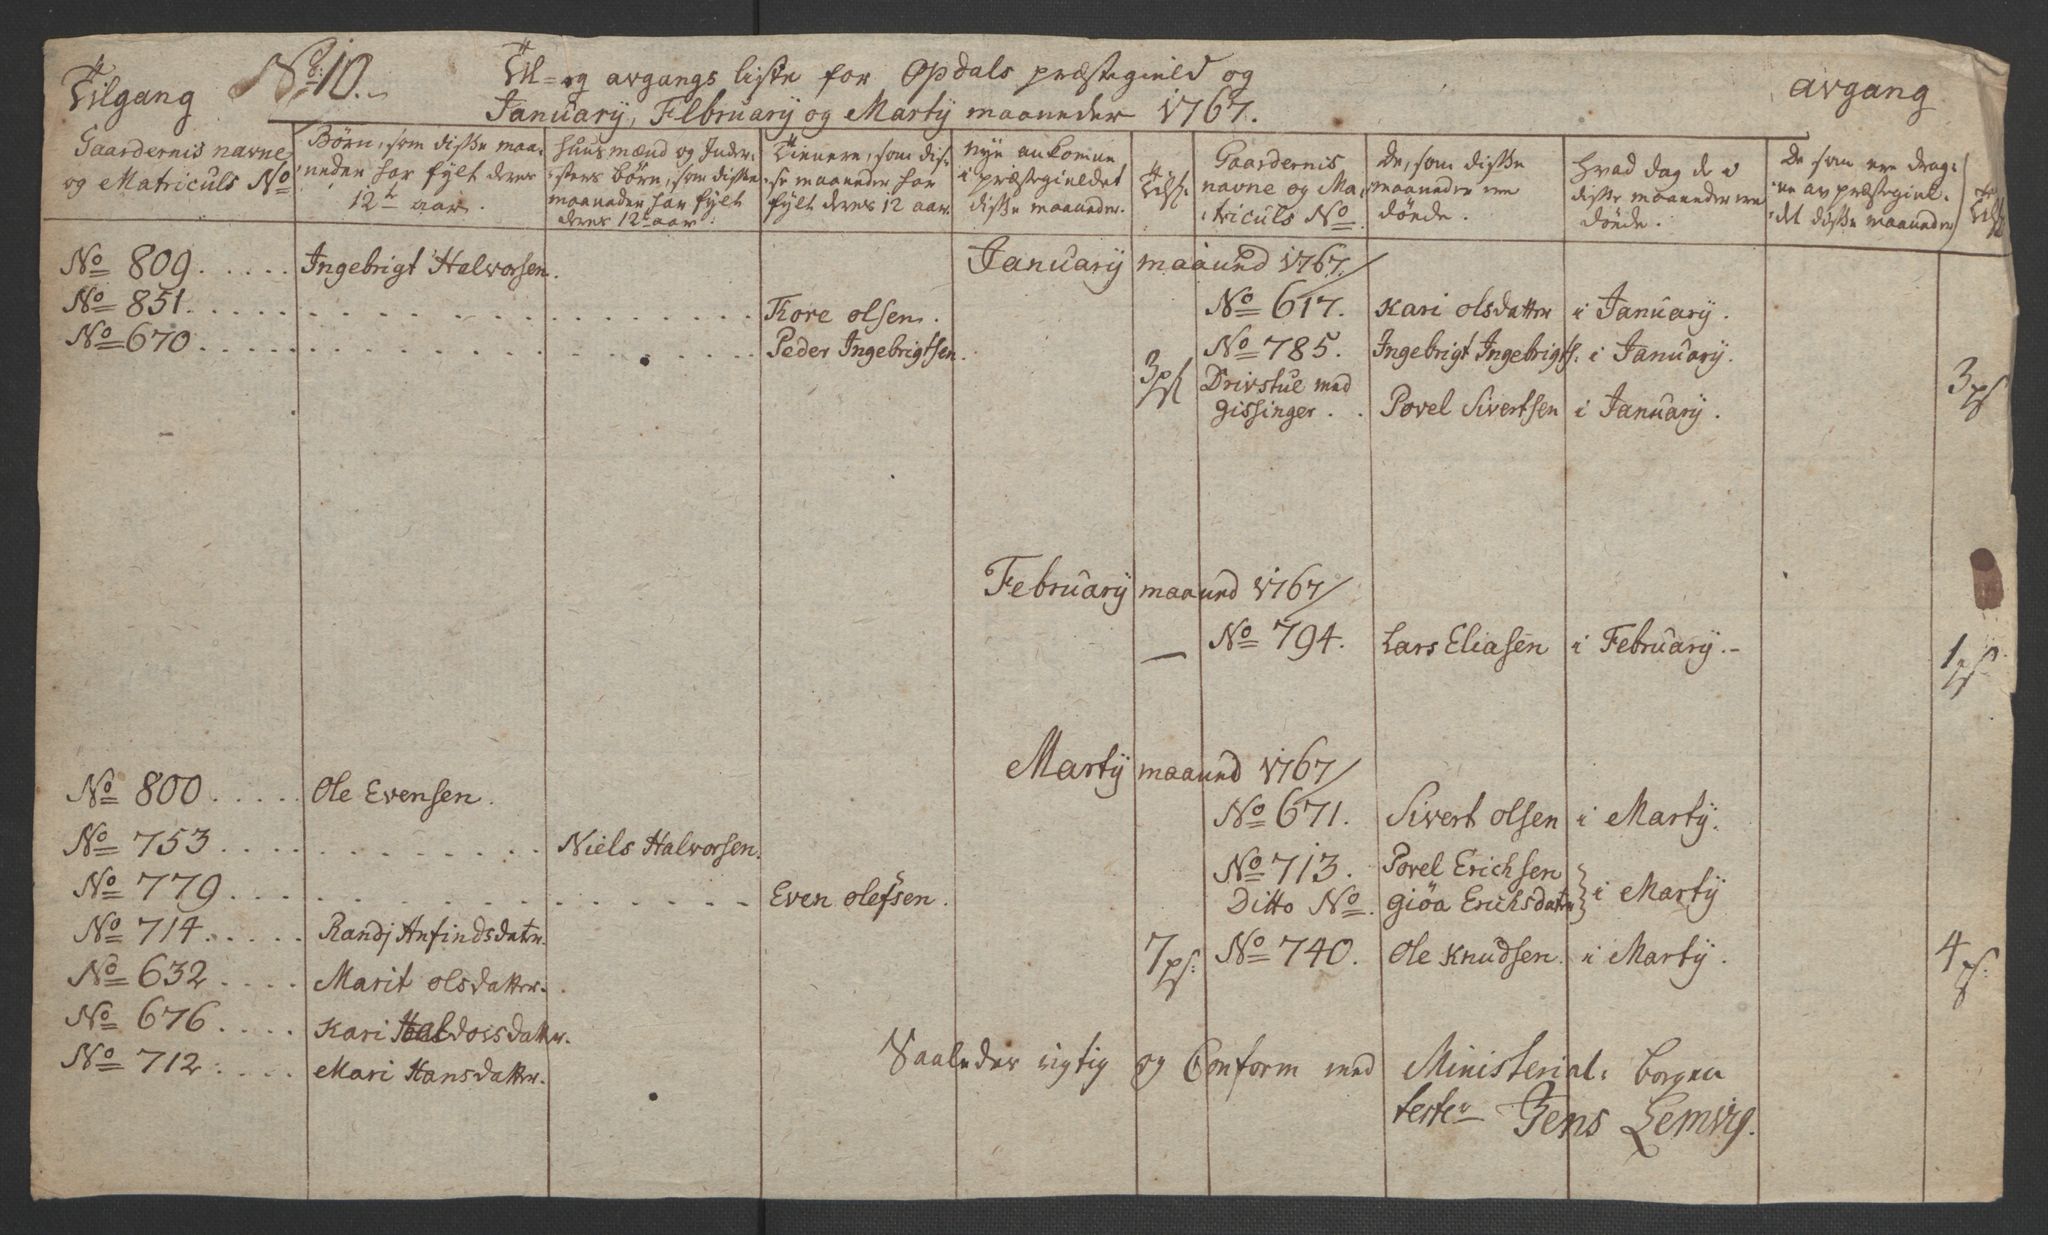 Tilgang No: 10. Til- og avgangs liste for Opdals præstegield og avgang
January, February og Martij maaneder 1767.
Gaardernis navne og Matriculs No
Børn, som disse maa:neder har fylt deres 12te aar.
Huusmænd og Inder:sters børn, som disse maaneder har fylt deres 12te aar.
Tienere, som dis:se maaneder har fylt deres 12 aar.
Nye ankomne i præstegieldet disse maaneder.
Tils:
Gaardernis navne og Ma:triculs No
De, som disse maaneder ere døede.
Hvad dag de i disse maaneder ere døede.
De som ere drag:ne av præstegiel:det disse maaneder
Tils:
January maaned 1767/
No 809. . . . . . Ingebrigt Halvorsen.
No 851. . . . . . Tore Olsen. No 617. Kari Olsdatter i January.
No 670. . . . . . Peder Ingebrigtsen. 3ps No 785. Ingebrigt Ingebrigts: i January. 3ps
Drivstue med
Gissinger. . Povel Sivertsen i January.
February maaned 1767/
— No 794. Lars Eliasen i February.- 1ps
Martij maaned 1767/
No 800. . . . . Ole Evensen. No 671. Sivert Olsen i Martij.
No 753. . . . . Niels Halvorsen. No 713. Povel Erichsen
No 779. . . . . Even Olefsen. Ditto No. Giøa Erichsdater } i Martij
No 714. . . . . Randj Anfindsdatr. 7ps: No 740. Ole Knudsen. i Martij. 4ps:
No 632. . . . Marit Olsdatter.
No 676. . . . Kari Haldorsdatter.
No 712. . . . Mari Hansdatter.
Saaledes rigtig og Conform med Ministerial: bogen
tester Jens Lemvig.